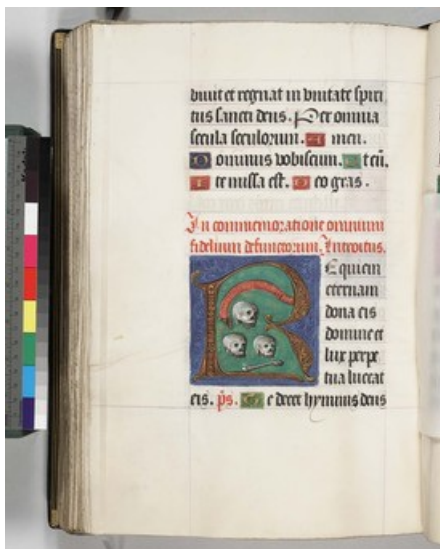 viuit et regnat in vnitate spiri
tus sancti deus. Per omnia
secula seculorum. Amen.
Dominus vobiscum. Et cū.
Ite missa est. Deo gras.
In commemoratione omnium
fidelium defunctorum. Introitus.
Requiem
eternam
dona eis
domine et
lux perpe
tua luceat
eis. ps. Te decet hymnus deus